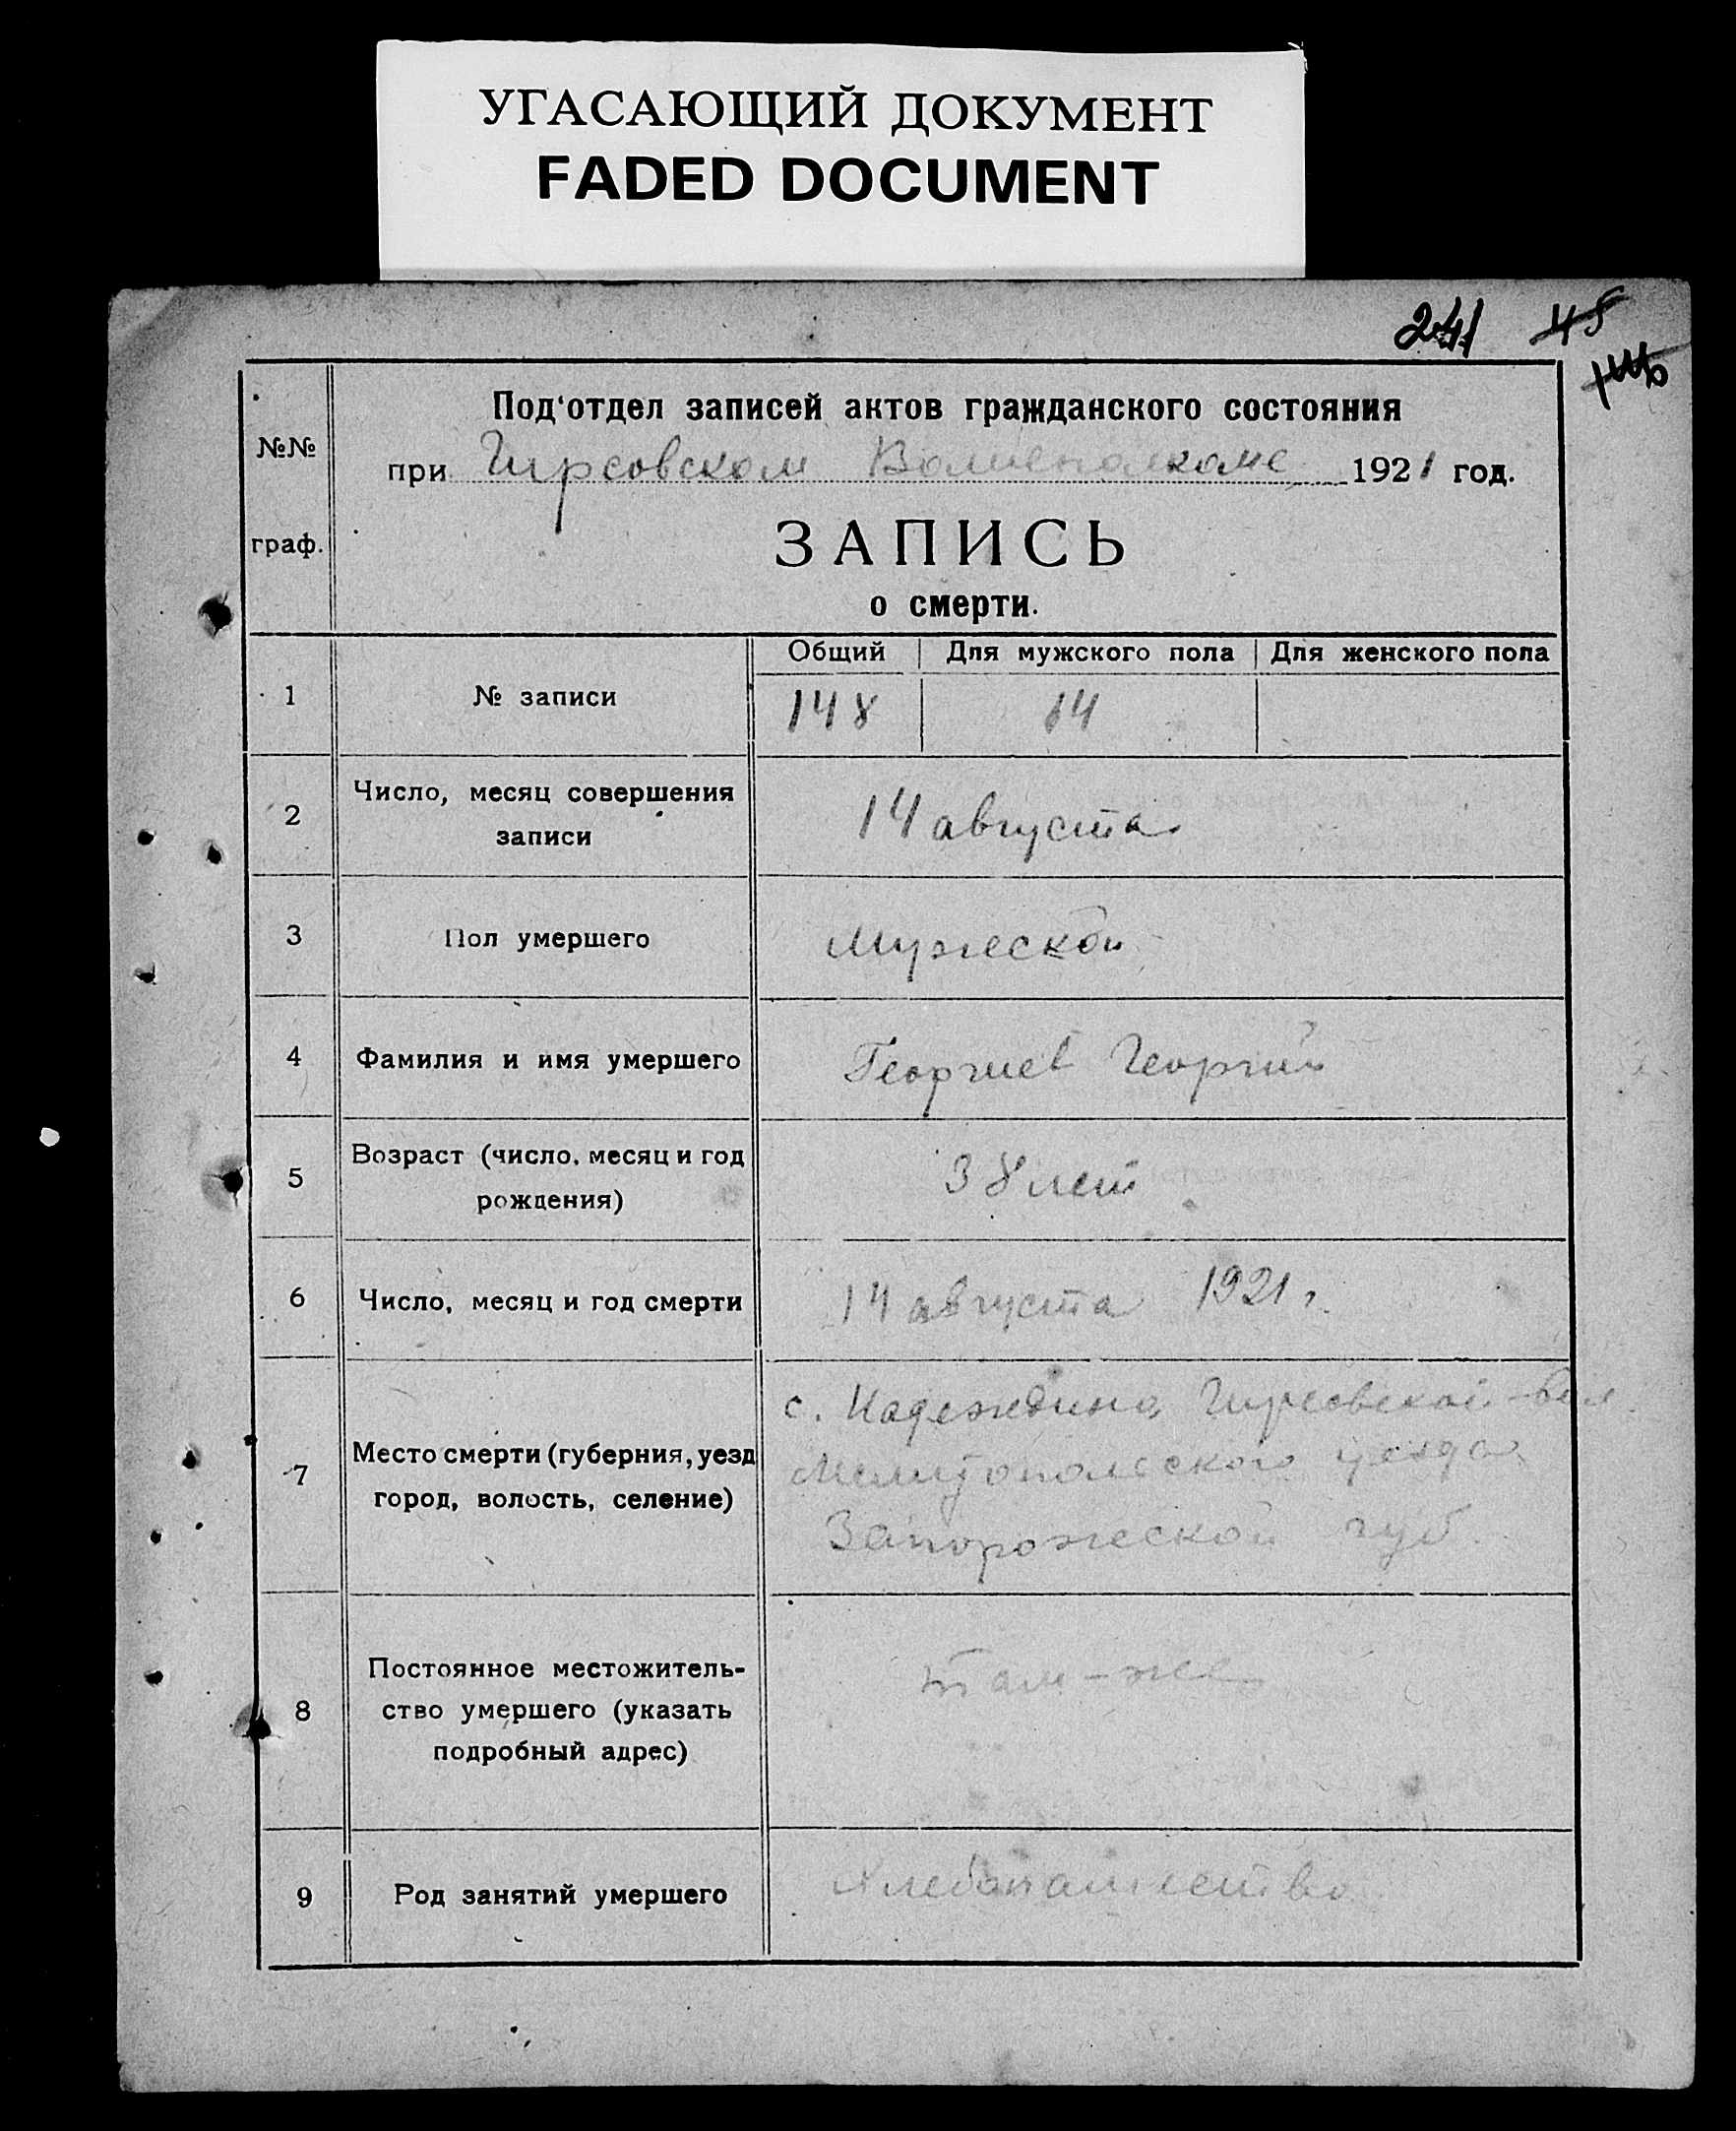 УГАСАЮЩИЙ ДОКУМЕНТ
FADED DOCUMENT
241 45
№№ граф.
Под‘отдел записей актов гражданского состояния
при Гирсовском Волисполкоме 1921 год.
ЗАПИСЬ
о смерти.
Общий Для мужского пола Для женского пола
1 № записи 148 14
2 Число, месяц совершения
записи
14 августа
3 Пол умершего Мужеской
4 Фамилия и имя умершего Георгиев Георгий
5 Возраст (число, месяц и год
рождения)
38 лет
6 Число, месяц и год смерти 14 августа 1921 г.
7 Место смерти (губерния, уезд
город, волость, селение)
с. Надеждино, Гирсовской вол.
Мелитопольского уезда
Запорожеской губ.
8 Постоянное местожитель-
ство умершего (указать
подробный адрес)
там-же
9 Род занятий умершего Хлебопашество